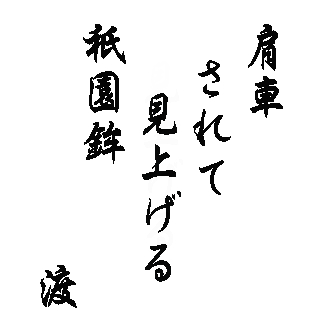 肩車
されて
見上げる
祇園鉾
渡